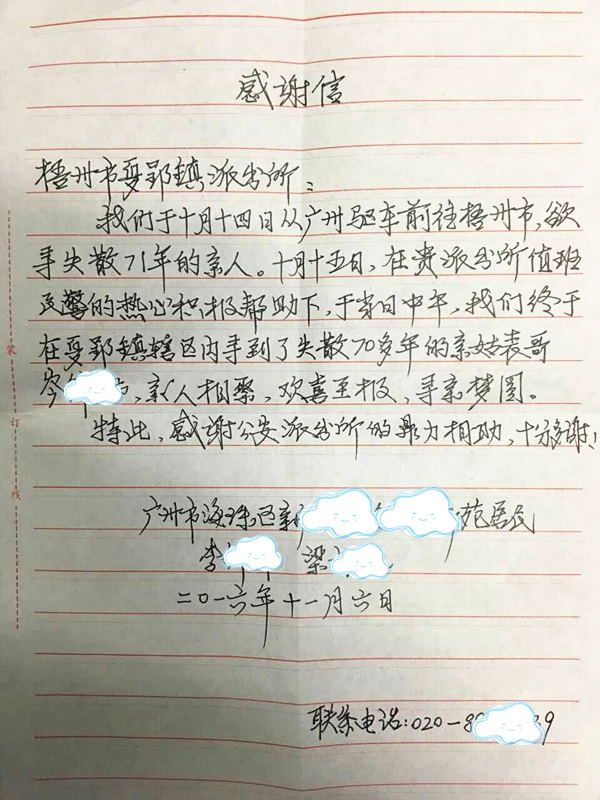 感谢信
梧州市夏郢镇派出所：
我们于十月十四日从广州驱车前往梧州市，欲
寻失散71年的亲人。十月十五日，在贵派出所值班
民警的热心积极帮助下，于当日中午，我们终于
在夏郢镇辖区内寻到了失散70多年的亲姑表哥
岑，亲人相聚，欢喜至极，寻亲梦圆。
特此，感谢公安派出所的鼎力相助，十分多谢！
广州市海珠区新 苑居民
李 梁
二0一六年十一月六日
联系电话：020-8 9
装
订
线